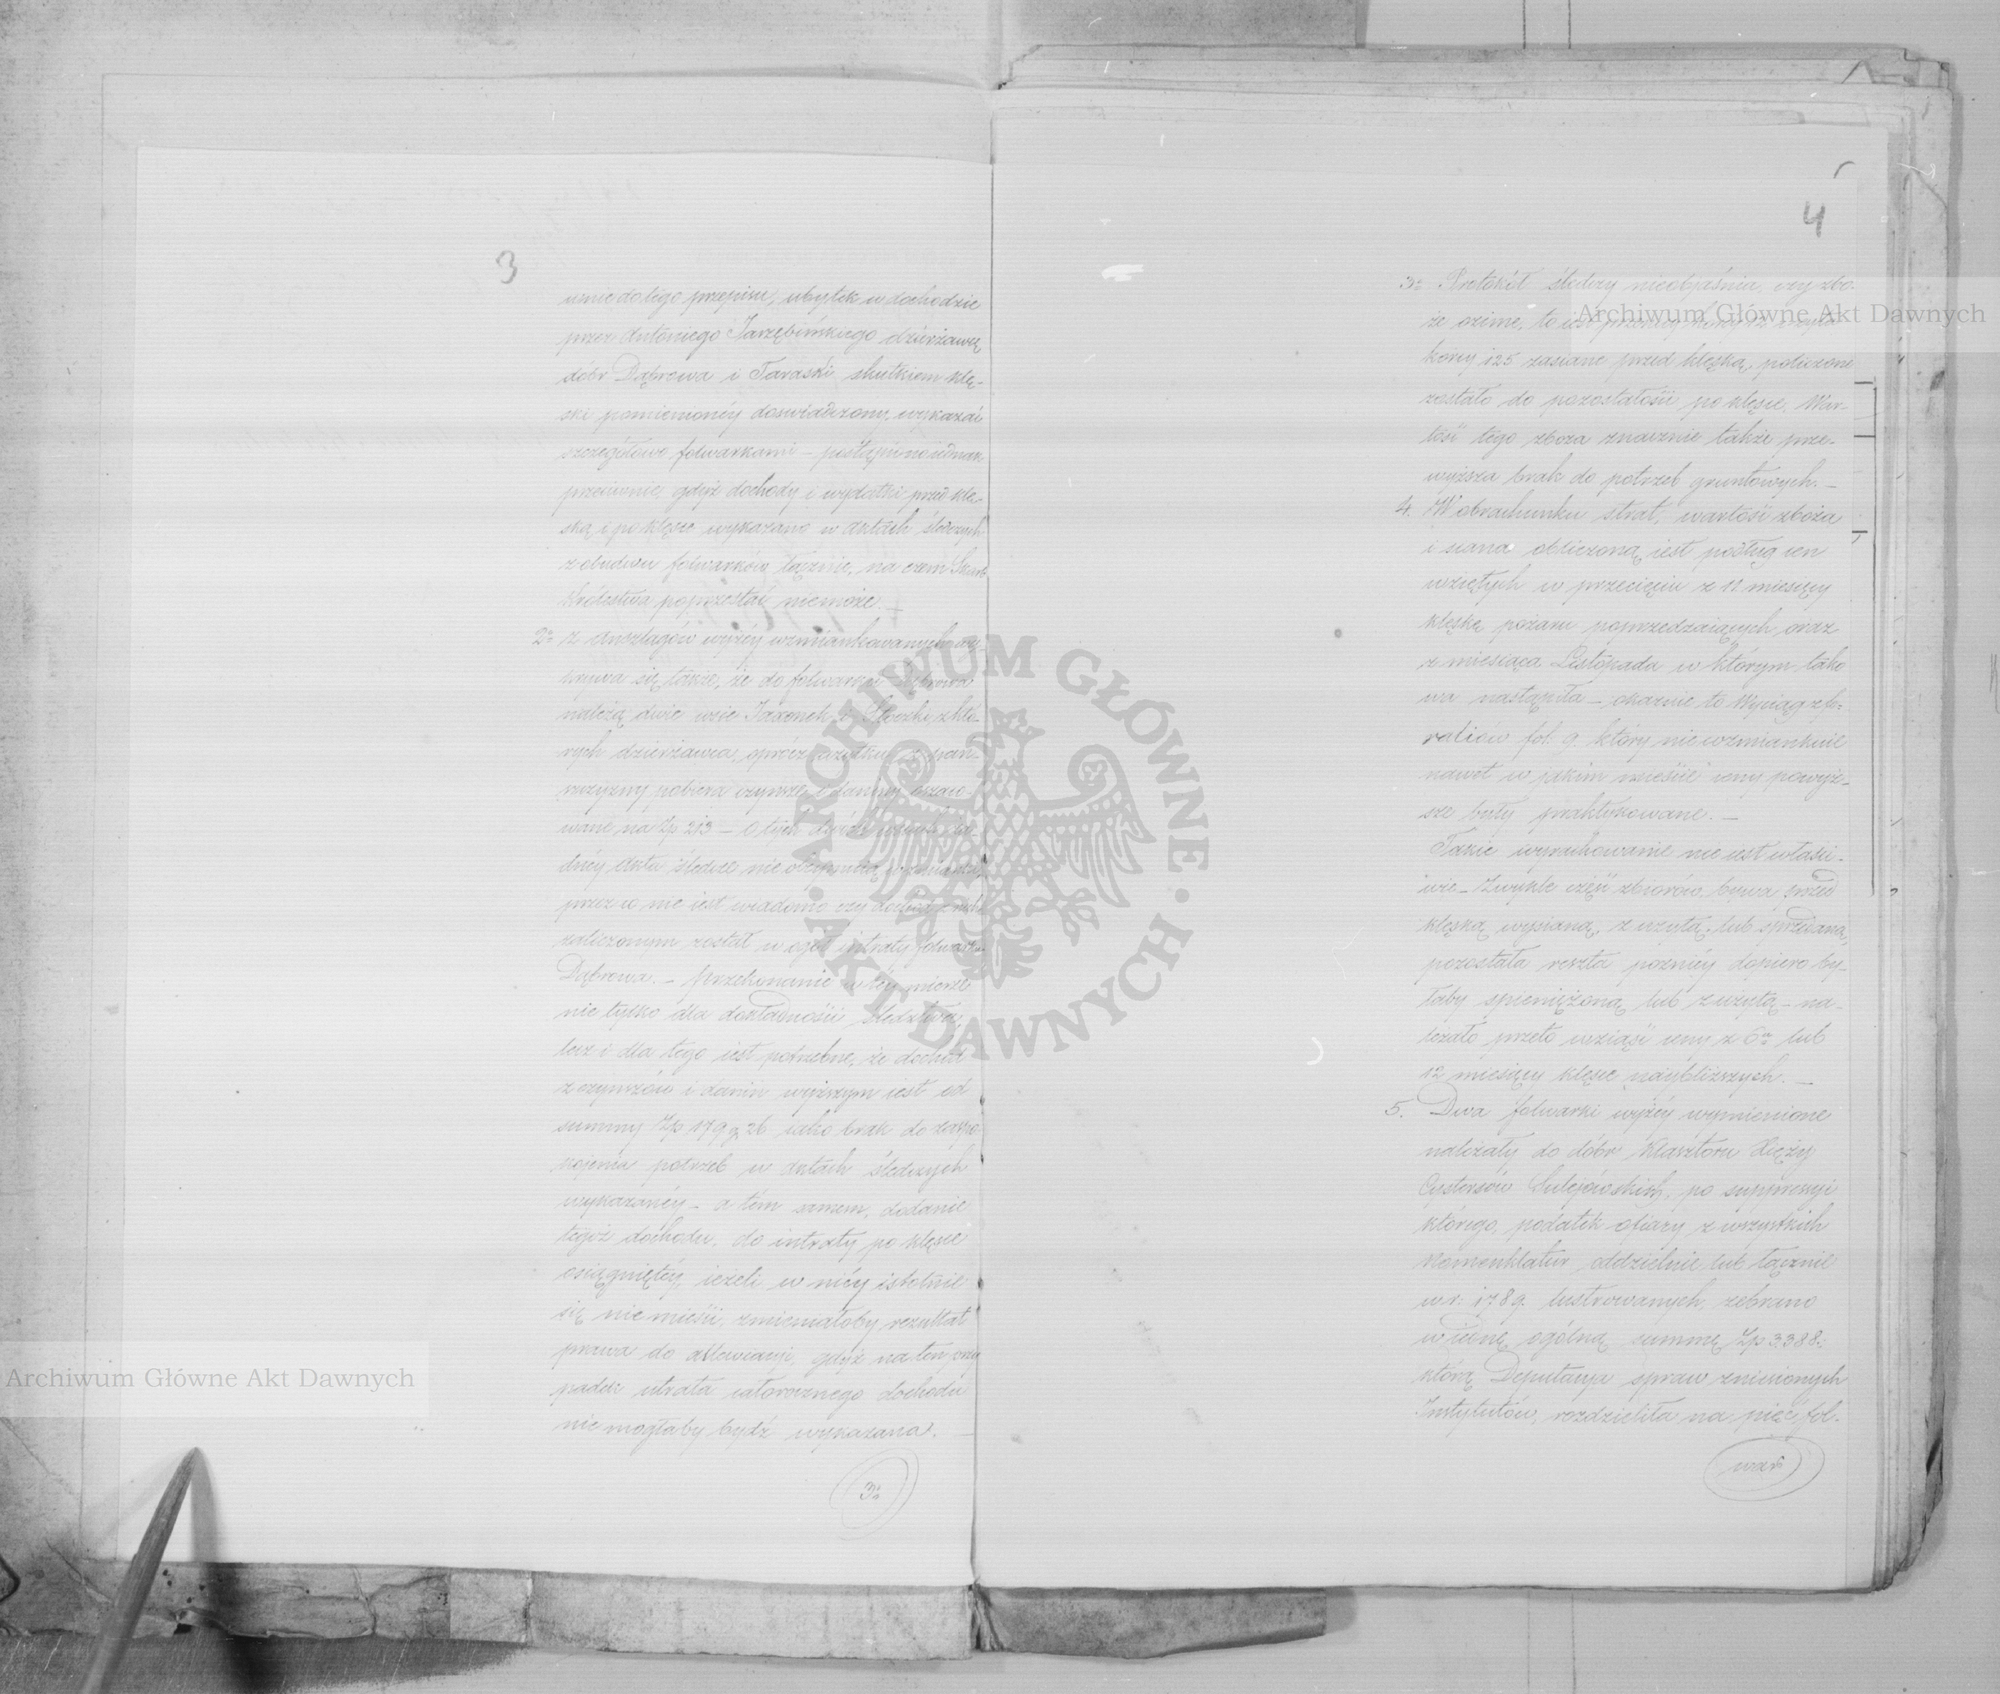 3
wnie do tego przepisu, ubytek w dochodzie
przez Antoniego Jarzębińskiego dzierżawcę
dóbr Dąbrowa i Taraski skutkiem klę-
ski pomienionéy doświadczony, wykazać
szczegółowo folwarkami – postąpiono iednak
przeciwnie, gdyż dochody i wydatki przed klę-
ską i po klęsce wykazano w aktach śledczych
z obudwu folwarków łącznie, na czem Skarb
Królestwa poprzestać niemoże. –
2o z anszlagów wyżéy wzmiankowanych wy-
krywa się także, że do folwarku Dąbrowa
należą dwie wsie i któ-
rych dzierżawca, oprócz użytku z pań-
szczyzny pobiera czynsze i daniny oszaco-
wane na Zp 213 – O tych dwóch wsiach ża-
dnéy akta śledcze nie obeymuią wzmianki,
przez co nie iest wiadomo czy dochód z nich
zaliczonym został w ogół intraty folwarku
Dąbrowa. – przekonanie w téy mierze
nie tylko dla dokładności śledztwa,
lecz i dla tego iest potrzebne, że dochód
z czynszów i danin wyższym iest od
summy Zp 179 g 26 iako brak do zaspo-
koienia potrzeb w aktach śledczych
wykazanéy – a tém samem, dodanie
tegoż dochodu, do intraty po klęsce
osiągniętéy, ieżeli w niéy istotnie
się nie mieści, zmieniałoby rezultat
prawa do allewiacyi, gdyż na ten przy-
padek utrata całorocznego dochodu
nie mogłaby bydź wykazana. –
3o
4
3o Protokół śledczy nieobjaśnia, czy zbo-
że ozime, to iest pszenicy korcy i żyta
korcy 125 zasiane przed klęską, policzone
zostało do pozostałości po klęsce. War-
tość tego zboża znacznie także prze-
wyższa brak do potrzeb gruntowych. –
4. W obrachunku strat, wartość zboża
i siana obliczoną iest podług cen
wziętych w przecięciu z 11 miesięcy
klęskę pożaru poprzedzaiących, oraz
z miesiąca Listopada w którym tako-
wa nastąpiła – okazuie to Wyciąg z fo-
raliów fol. 9. który nie wzmiankuie
nawet w jakim mieście ceny powyż-
sze były praktykowane. –
Takie wyrachowanie nie iest właści-
wie – Zwykle część zbiorów bywa przed
klęską wysianą, zużytą, lub sprzedaną,
pozostała reszta poźniéy dopiero by-
łaby spieniężoną lub zużytą – na-
leżało przeto wziąść ceny z 6o lub
12 miesięcy klęsce naybliższych. –
5. Dwa folwarki wyżéy wymienione
należały do dóbr klasztoru Xięży
Cystersów Sulejowskich, po suppressyi
którego, podatek ofiary z wszystkich
Nomenklatur oddzielnie lub łącznie
w r: 1789. lustrowanych, zebrano
w iednę ogólną summę Zp 3388:
którą Deputacya spraw zniesionych
Instytutów, rozdzieliła na pięć fol-
war-
Archiwum Główne Akt Dawnych
Archiwum Główne Akt Dawnych
ARCHIWUM GŁÓWNE
AKT DAWNYCH